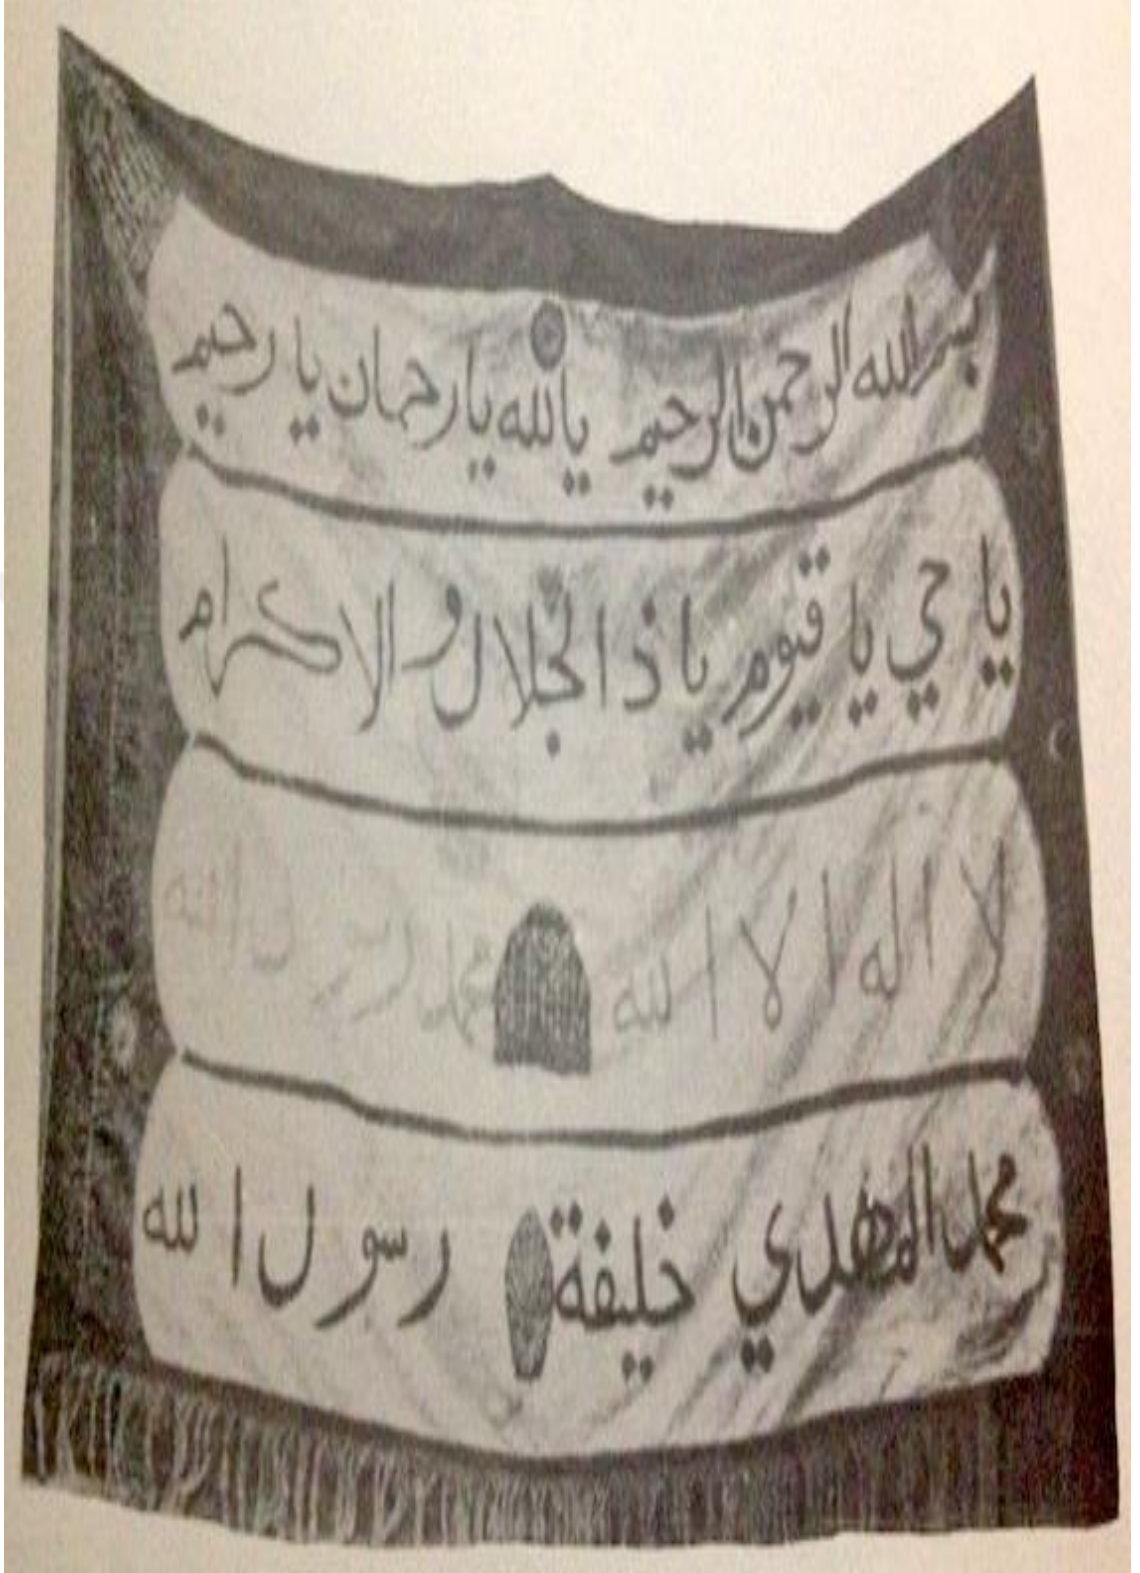 بسم الله الرحمن الرحيم يالله يارحمان يا رحيم
يا حي يا قيوم يا ذا الجلال و الاكرام
لا اله الا الله محمد رسول الله
محمد المهدي خليفة رسول الله